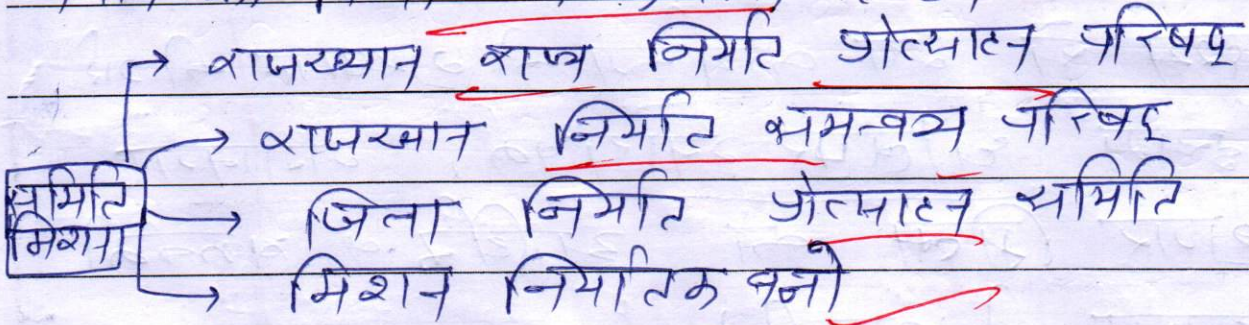 → राजस्थान राज्य निर्यात प्रोत्साहन परिषद्
→ राजस्थान निर्यात समन्वय परिषद्
समिति
मिशन
→ जिला निर्यात प्रोत्साहन समिति
→ मिशन निर्यातक बनो